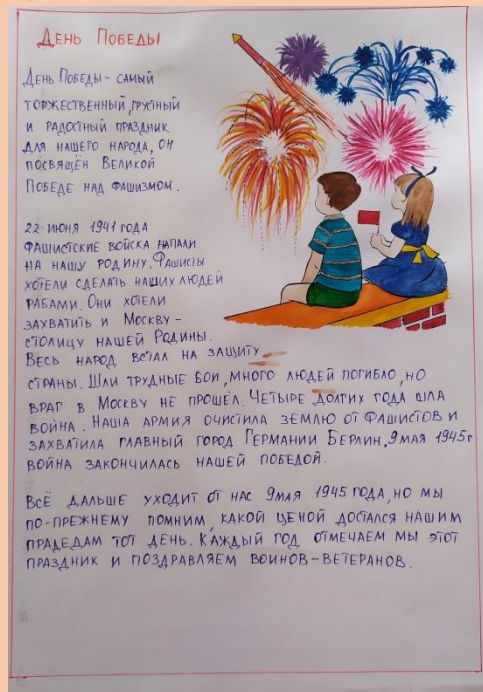 День Победы
День Победы - самый
торжественный, грустный
и радостный праздник
для нашего народа, он
посвящён Великой
Победе над фашизмом.
22 июня 1941 года
фашистские войска напали
на нашу Родину. Фашисты
хотели сделать наших людей
рабами. Они хотели
захватить и Москву -
столицу нашей Родины.
Весь народ встал на защиту
страны. Шли трудные бои, много людей погибло, но
враг в Москву не прошёл. Четыре долгих года шла
война. Наша армия очистила землю от фашистов и
захватила главный город Германии Берлин. 9 мая 1945 г
война закончилась нашей победой.
Всё дальше уходит от нас 9 мая 1945 года, но мы
по-прежнему помним, какой ценой достался нашим
прадедам тот день. Каждый год отмечаем мы этот
праздник и поздравляем воинов-ветеранов.